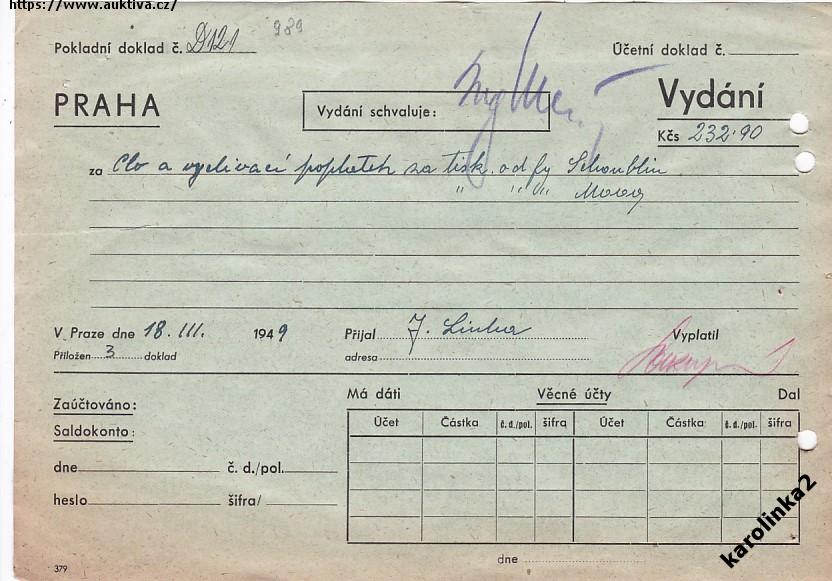 https://www.auktiva.cz/
Pokladní doklad č. D121 989 Účetní doklad č.
PRAHA Vydání schvaluje: Vydání
Kčs 232·90
za Clo a vyclívací poplatek za tisk. od fy Schoublin
" " "
V Praze dne 18. III. 1949 Přijal J. Linha Vyplatil
Přiložen 3 doklad adresa
Má dáti Věcné účty Dal
Zaúčtováno:
Saldokonto:
Účet Částka č. d./pol. šifra Účet Částka č. d./pol. šifra
dne č. d./pol.
heslo šifra/
dne
379
karolinka2